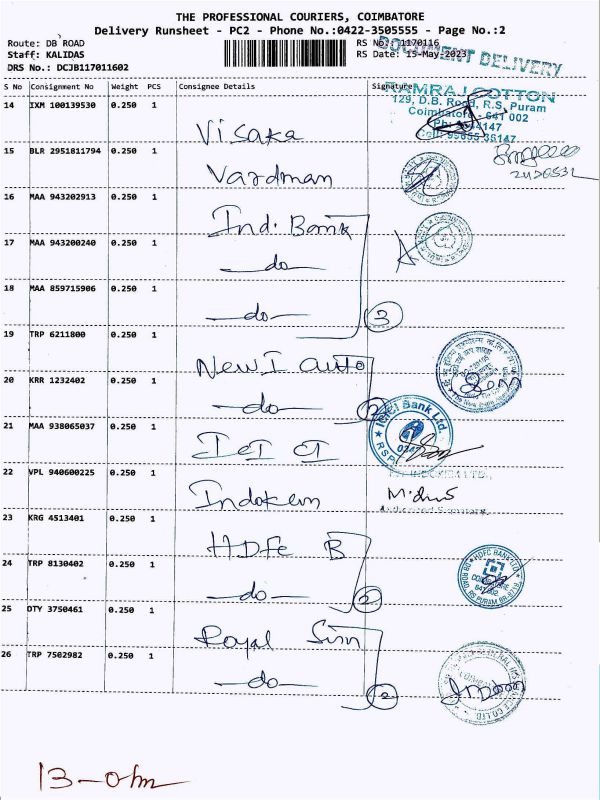 THE PROFESSIONAL COURIERS, COIMBATORE
Delivery Runsheet - PC2 - Phone No.:0422-3505555 - Page No.:2
Route: DB ROAD
RS No.: 1170116
Staff: KALIDAS
RS Date: 15-May-2023
DOCUMENT DELIVERY
DRS No.: DCJB117011602
S No Consignment No Weight PCS Consignee Details Signature
RAMRAJ COTTON
129, D.B. Road, R.S. Puram
Coimbatore - 641 002
14 IXM 100139530 0.250 1 Visaka
15 BLR 2951811794 0.250 1 Vardman
16 MAA 943202913 0.250 1 Ind. Bank
17 MAA 943200240 0.250 1 —do—
18 MAA 859715906 0.250 1 —do— 3
19 TRP 6211800 0.250 1 New I auto
20 KRR 1232402 0.250 1 —do— 2
21 MAA 938065037 0.250 1
ICICI Bank Ltd.
22 VPL 940600225 0.250 1 Indokem
23 KRG 4513401 0.250 1 HDFC B
24 TRP 8130402 0.250 1 —do— 2
HDFC BANK LTD
25 OTY 3750461 0.250 1 Royal Sun
26 TRP 7502982 0.250 1 —do— 2